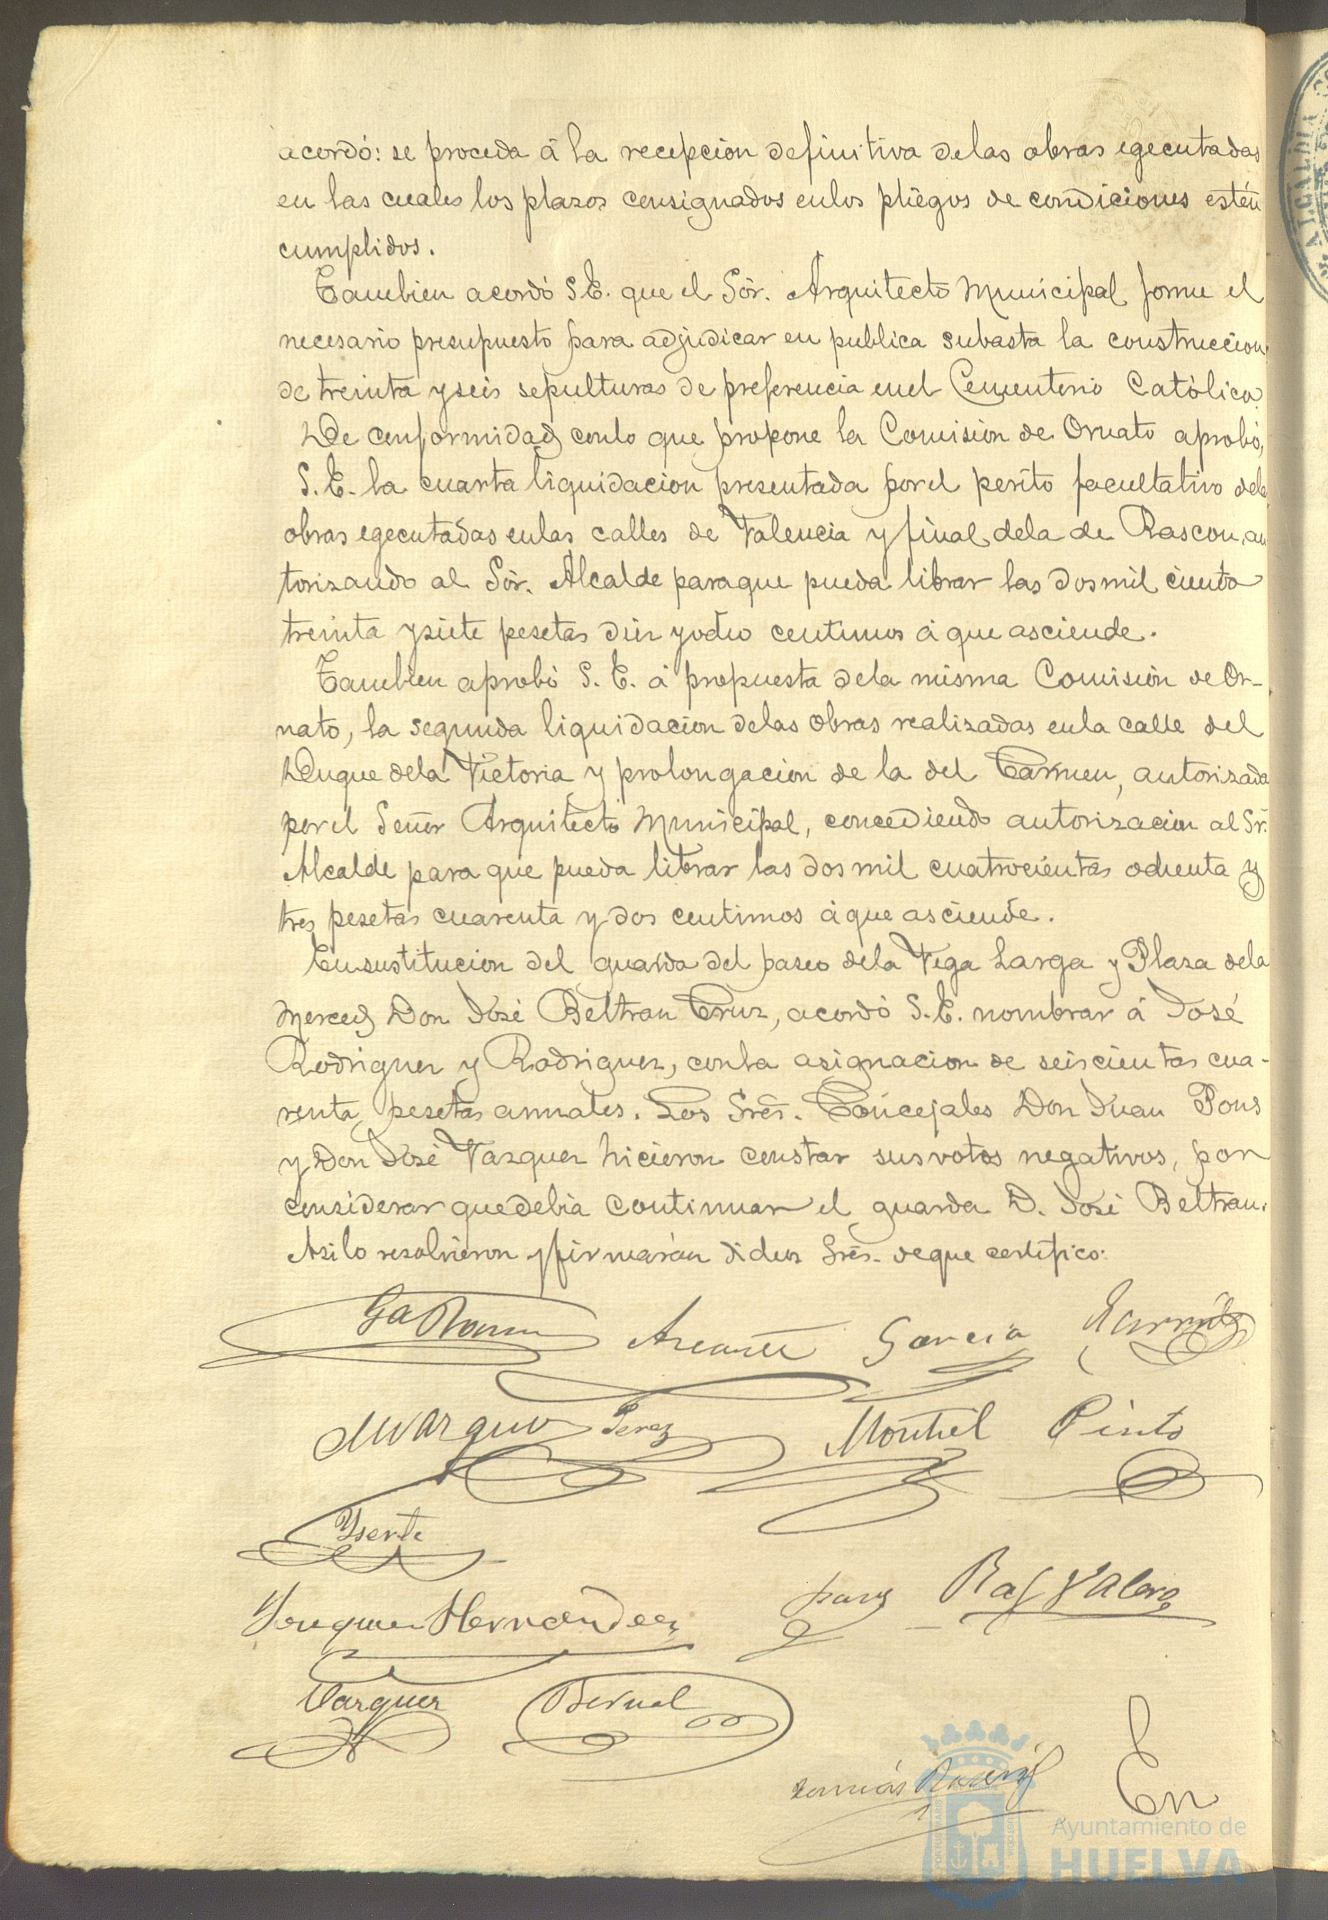 acordó: se proceda á la recepcion definitiva delas obras egecutadas
en las cuales los plazos consignados enlos pliegos de condiciones estén
cumplidos.
Tambien acordó S.E. que el Sór. Arquitecto Municipal forme el
necesario presupuesto para adjudicar en publica subasta la construccion
de treinta y seis sepulturas de preferencia enel Cementerio Católico.
De conformidad conlo que propone la Comisión de Ornato aprobó,
S.E. la cuarta liquidacion presentada porel perito facultativo dela
obras egecutadas enlas calles de Valencia y final dela de Rascon, au
torizando al Sór. Alcalde paraque pueda librar las dos mil ciento
treinta y siete pesetas diez y ocho centimos á que asciende.
Tambien aprobó S. E. á propuesta dela misma Comisión de Or-
nato, la segunda liquidacion delas obras realizadas enla calle del
Duque dela Victoria y prolongacion de la del Carmen, autorizada
porel Señor Arquitecto Municipal, concediendo autorizacion al Sr.
Alcalde para que pueda librar las dos mil cuatrocientas ochenta y
tres pesetas cuarenta y dos centimos á que asciende.
En sustitucion del guarda del paseo dela Vega Larga y Plaza dela
Merced Don José Beltran Cruz, acordó S.E. nombrar á José
Rodriguez y Rodriguez, conla asignacion de seiscientas cua-
renta pesetas anuales. Los Srēs. Concejales Don Juan Pons
y Don José Vazquez hicieron constar sus votos negativos, por
considerar que debia continuar el guarda D. José Beltran.
Asilo resolvieron y firmarán dichos Srēs. de que certifico:
García
Perez Montiel Pinto
Yserte
Joaquin Hernandez Raf Valero
Vazquez Bernal
Tomás
En
Ayuntamiento de
HUELVA
ALCALDIA